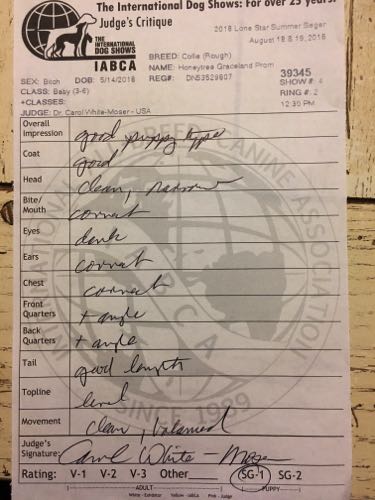 The International Dog Shows: For over 25 years.
Judge's Critique
THE INTERNATIONAL DOG SHOWS
IABCA
2018 Lone Star Summer Sieger
August 18 & 19, 2018
BREED: Collie (Rough)
NAME: Honeytree Graceland Prom
SEX: Bitch DOB: 5/14/2018 REG#: DN53529807
39345
SHOW #: 4
CLASS: Baby (3-6)
RING #: 2
+CLASSES:
12:30 PM
JUDGE: Dr. Carol White-Moser - USA
Overall Impression good puppy type
Coat good
Head clean, narrow
Bite/Mouth correct
Eyes dark
Ears correct
Chest correct
Front Quarters + angle
Back Quarters + angle
Tail good length
Topline level
Movement clean, balanced
Judge's Signature: Carol White-Moser
Rating: V-1 V-2 V-3 Other SG-1 SG-2
ADULT PUPPY
White - Exhibitor Yellow - Iabca Pink - Judge
INTERNATIONAL ALL BREED CANINE ASSOCIATION
IABCA
SINCE 1989